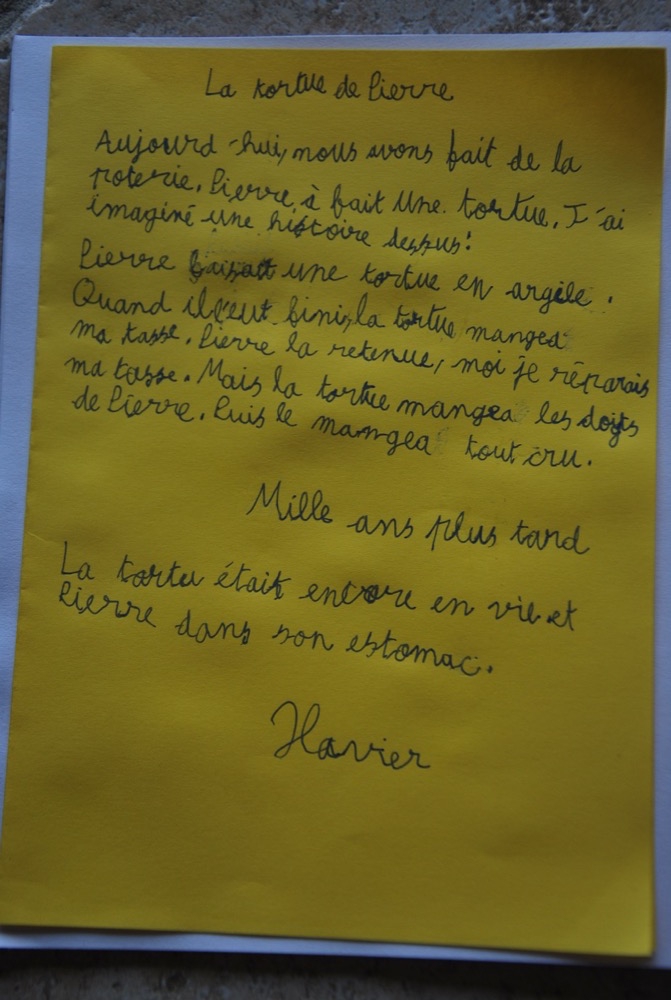 La tortue de Pierre
Aujourd-hui, nous avons fait de la
poterie. Pierre, à fait une tortue. J'ai
imaginé une histoire dessus!
Pierre faisait une tortue en argile.
Quand il l'eut fini, la tortue mangea
ma tasse. Pierre la retenue, moi je réparais
ma tasse. Mais la tortue mangea les doigts
de Pierre. Puis le mangea tout cru.
Mille ans plus tard
La tortu était encore en vie et
Pierre dans son estomac.